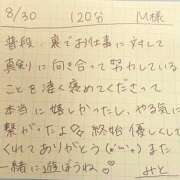 8/30 120分 M様
普段、裏でお仕事に対して
真剣に向き合って努力している
ことを凄く褒めてくださって
本当に嬉しかったし、やる気に
繋がったよ 終始優しくして
くれてありがとう(´ω`) また
一緒に遊ぼうね♡
みと